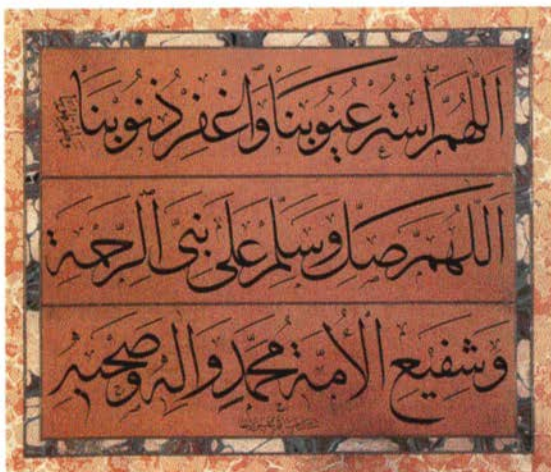 اَللّٰهُمَّ اسْتُرْ عُيُوبَنَا وَاغْفِرْ ذُنُوبَنَا
اَللّٰهُمَّ صَلِّ وَسَلِّمْ عَلَى نَبِيِّ الرَّحْمَةِ
وَشَفِيعِ الْأُمَّةِ مُحَمَّدٍ وَاٰلِهِ وَصَحْبِهِ